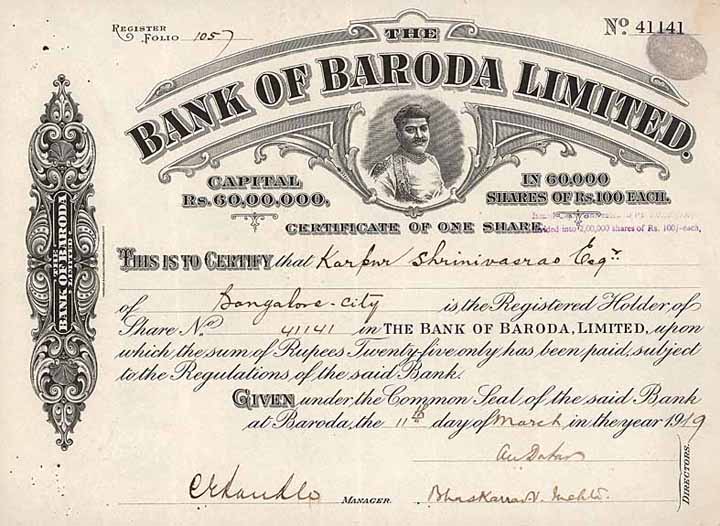 REGISTER
FOLIO 1057
No. 41141
THE
BANK OF BARODA LIMITED.
CAPITAL
Rs. 60,00,000,
IN 60,000
SHARES OF Rs. 100 EACH.
CERTIFICATE OF ONE SHARE.
into 2,00,000 shares of Rs. 100/- each,
THIS IS TO CERTIFY that Karpur Shrinivasrao Esqr.
of Bangalore-City is the Registered Holder, of
Share No. 41141 in THE BANK OF BARODA, LIMITED, upon
which the sum of Rupees Twenty-five only has been paid, subject
to the Regulations, of the said Bank.
GIVEN under the Common Seal of the said Bank
at Baroda, the 11th day of March in the year 1919
MANAGER.
Bhaskarrao V. Mehta.
DIRECTORS.
THE BANK OF BARODA LIMITED